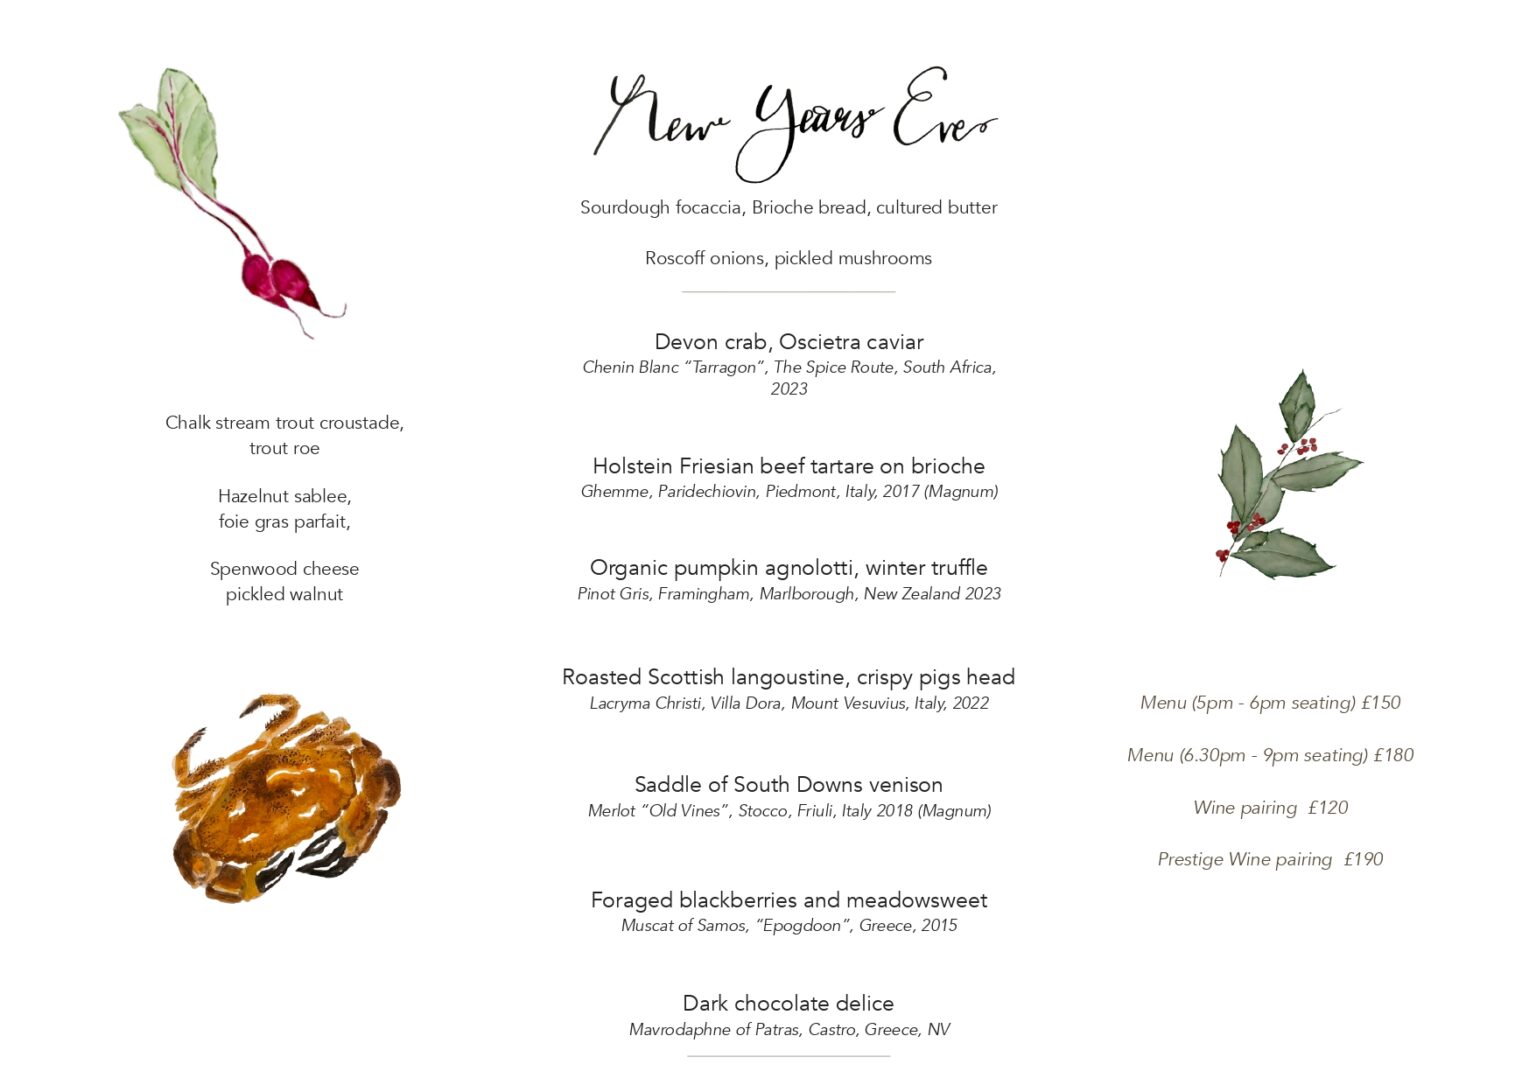 New Years Eve
Sourdough focaccia, Brioche bread, cultured butter
Roscoff onions, pickled mushrooms
Chalk stream trout croustade,
trout roe
Hazelnut sablee,
foie gras parfait,
Spenwood cheese
pickled walnut
Devon crab, Oscietra caviar
Chenin Blanc “Tarragon”, The Spice Route, South Africa,
2023
Holstein Friesian beef tartare on brioche
Ghemme, Paridechiovin, Piedmont, Italy, 2017 (Magnum)
Organic pumpkin agnolotti, winter truffle
Pinot Gris, Framingham, Marlborough, New Zealand 2023
Roasted Scottish langoustine, crispy pigs head
Lacryma Christi, Villa Dora, Mount Vesuvius, Italy, 2022
Saddle of South Downs venison
Merlot “Old Vines”, Stocco, Friuli, Italy 2018 (Magnum)
Foraged blackberries and meadowsweet
Muscat of Samos, “Epogdoon”, Greece, 2015
Dark chocolate delice
Mavrodaphne of Patras, Castro, Greece, NV
Menu (5pm - 6pm seating) £150
Menu (6.30pm - 9pm seating) £180
Wine pairing £120
Prestige Wine pairing £190